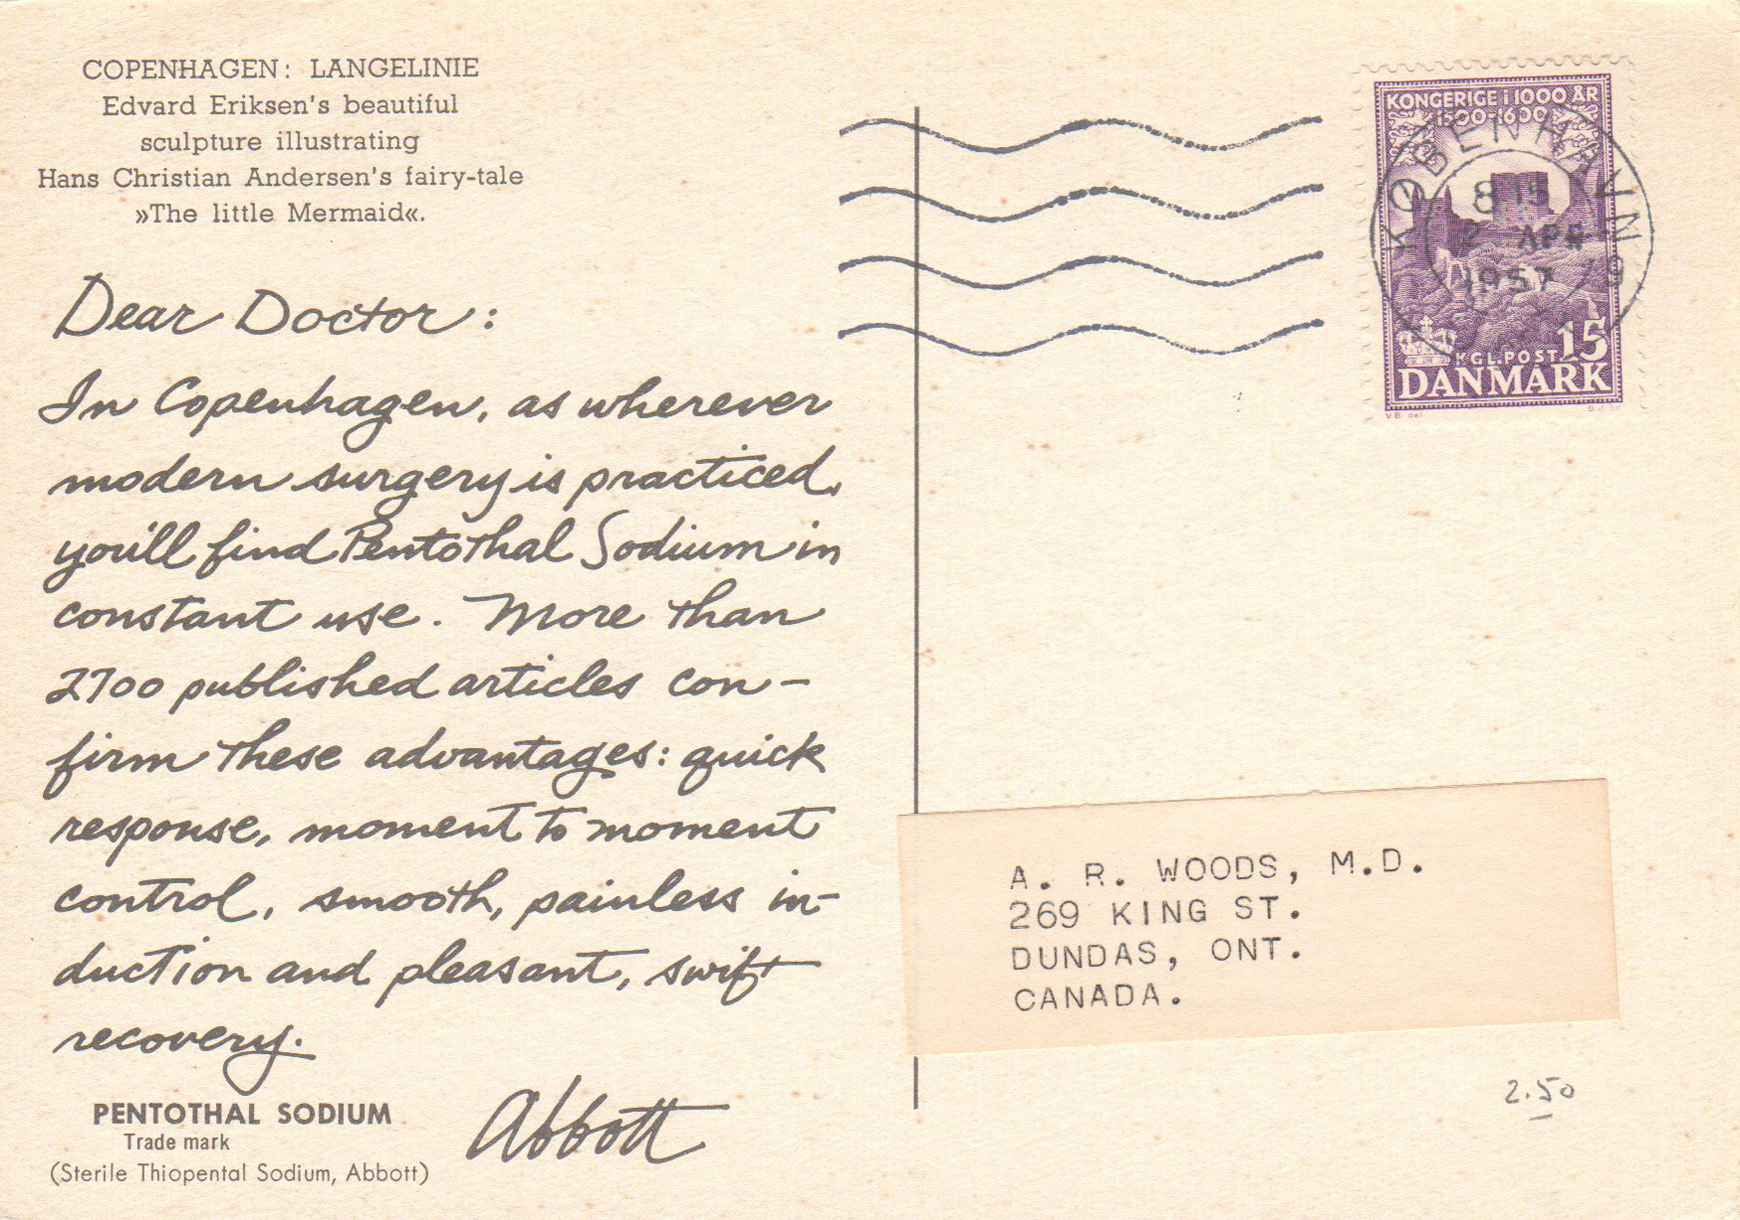 COPENHAGEN: LANGELINIE
Edvard Eriksen's beautiful
sculpture illustrating
Hans Christian Andersen's fairy-tale
»The little Mermaid«.
Dear Doctor:
In Copenhagen, as wherever
modern surgery is practiced,
you'll find Pentothal Sodium in
constant use. More than
2700 published articles con-
firm these advantages: quick
response, moment to moment
control, smooth, painless in-
duction and pleasant, swift
recovery.
Abbott
PENTOTHAL SODIUM
Trade mark
(Sterile Thiopental Sodium, Abbott)
KONGERIGE i 1000 ÅR
1500-1600
KØBENHAVN
8 15
2 APR
1957
19
15
KGL.POST
DANMARK
A. R. WOODS, M.D.
269 KING ST.
DUNDAS, ONT.
CANADA.
2.50